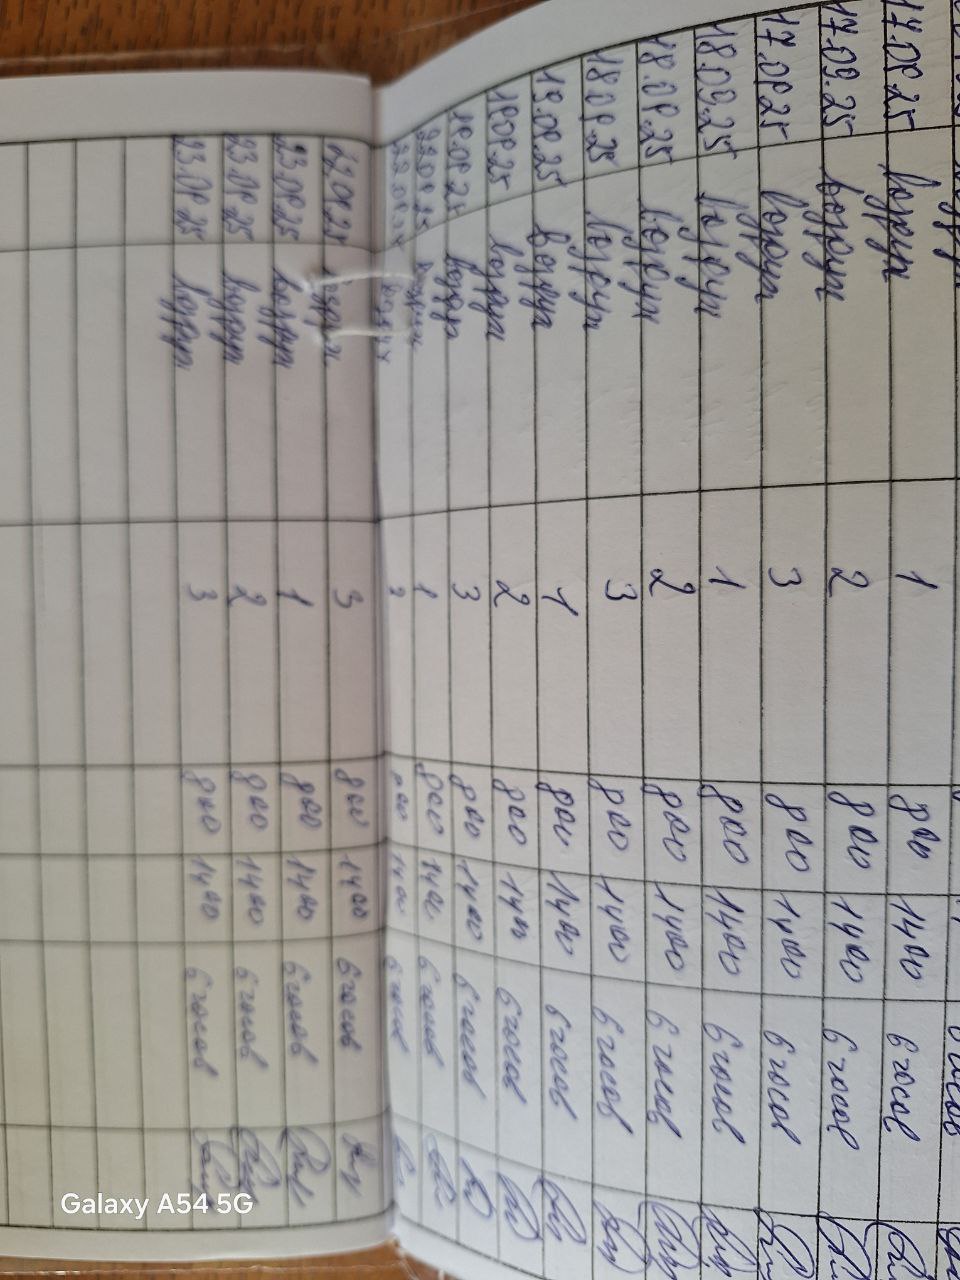 17.09.25 воздух 1 800 1400 6 часов
17.09.25 воздух 2 800 1400 6 часов
17.09.25 воздух 3 800 1400 6 часов
18.09.25 воздух 1 800 1400 6 часов
18.09.25 воздух 2 800 1400 6 часов
18.09.25 воздух 3 800 1400 6 часов
19.09.25 воздух 1 800 1400 6 часов
19.09.25 воздух 2 800 1400 6 часов
19.09.25 воздух 3 800 1400 6 часов
22.09.25 воздух 1 800 1400 6 часов
22.09.25 воздух 2 800 1400 6 часов
22.09.25 воздух 3 800 1400 6 часов
23.09.25 воздух 1 800 1400 6 часов
23.09.25 воздух 2 800 1400 6 часов
23.09.25 воздух 3 800 1400 6 часов
Galaxy A54 5G